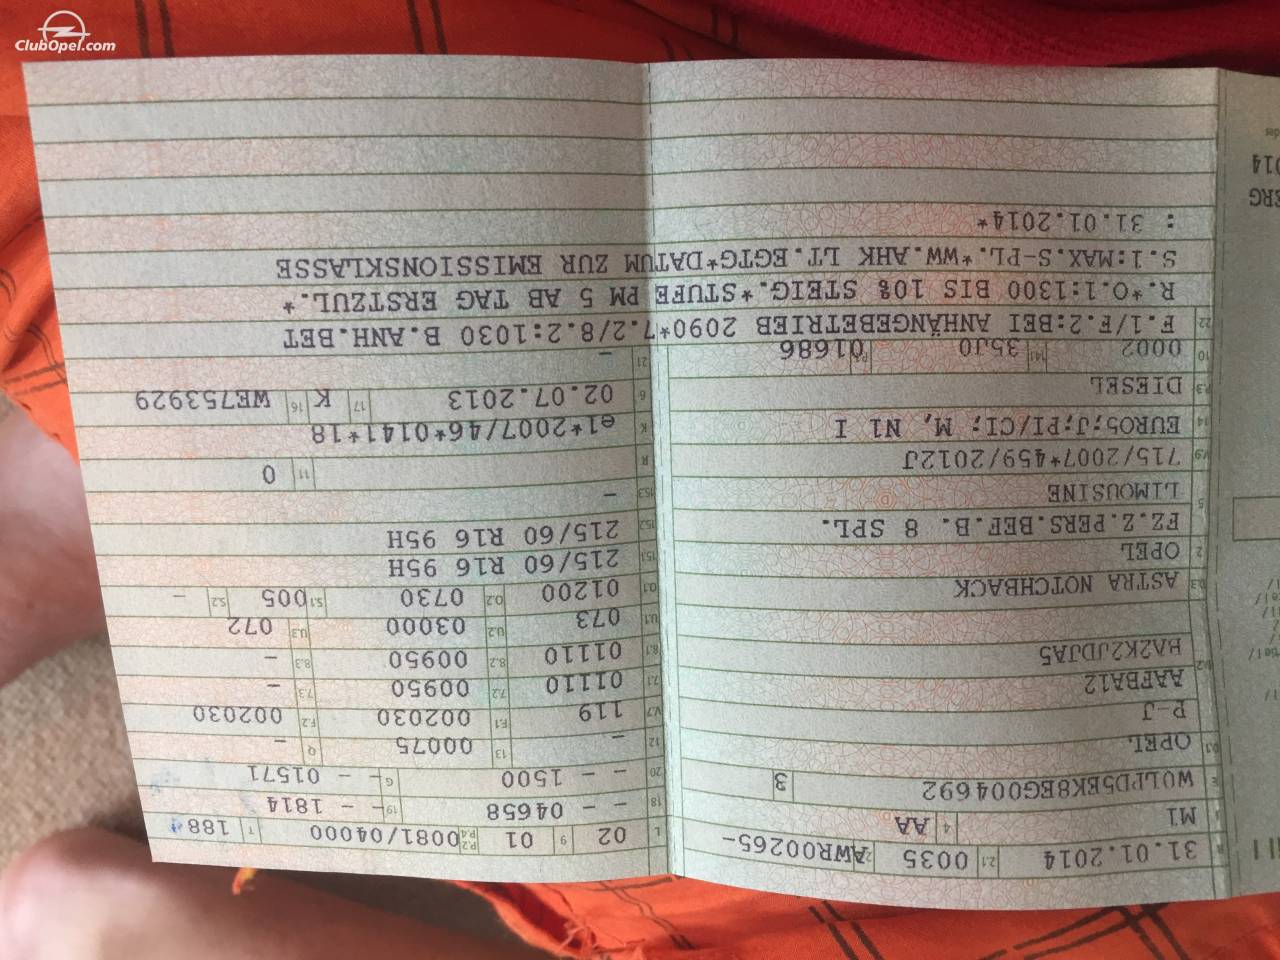 ClubOpel.com
B 31.01.2014 2.1 0035 2.2 AWR00265-
J M1 4 AA
E W0LPD5EK8EG004692 3 3
D.1 OPEL
P-J
D.2 AAFBA12
BA2K2JDJA5
D.3 ASTRA NOTCHBACK
2 OPEL
5 FZ.Z.PERS.BEF.B. 8 SPL.
LIMOUSINE
V.9 715/2007*459/2012J
14 EURO5;J;PI/CI: M, N1 I
P.3 DIESEL
10 0002 14.1 35J0 P.1 01686
L 02 9 01 P.2 P.4 0081/04000 T 188
18 - - 04658 19 - - 1814
20 - - 1500 G - - 01571
12 - 13 00075 Q -
V.7 119 F.1 002030 F.2 002030
7.1 01110 7.2 00950 7.3 -
8.1 01110 8.2 00950 8.3 -
U.1 073 U.2 03000 U.3 072
O.1 01200 O.2 0730 S.1 005 S.2 -
15.1 215/60 R16 95H
15.2 215/60 R16 95H
15.3 -
R 11 0
K e1*2007/46*0141*18
6 02.07.2013 17 K 16 WE753929
21 -
22 F.1/F.2:BEI ANHÄNGEBETRIEB 2090*7.2/8.2:1030 B.ANH.BET
R.*O.1:1300 BIS 10% STEIG.*STUFE PM 5 AB TAG ERSTZUL.*
S.1:MAX.S-PL.*WW.AHK LT.EGTG*DATUM ZUR EMISSIONSKLASSE
: 31.01.2014*